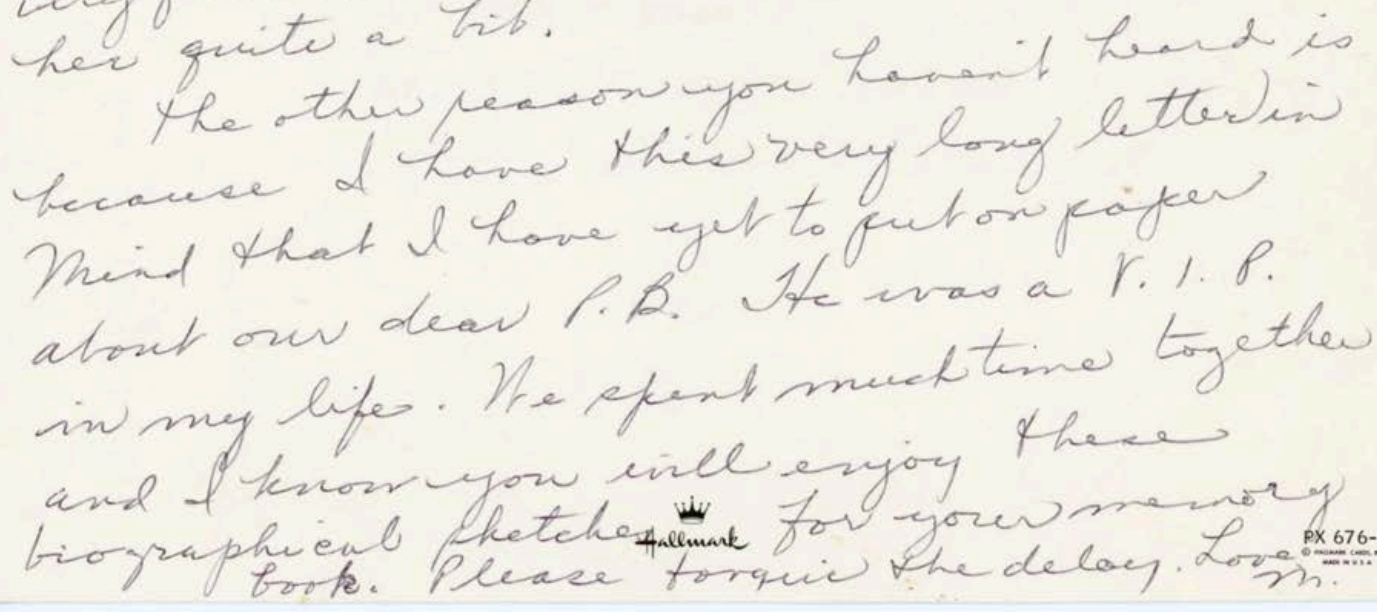 very
her quite a bit.
The other reason you haven't heard is
because I have this very long letter in
Mind that I have yet to put on paper
about our dear P.B. He was a V.I.P.
in my life. We spent much time together
and I know you will enjoy these
biographical sketches for your memory
book. Please forgive the delay. Love
M.
Hallmark
PX 676-
© HALLMARK CARDS,
MADE IN U.S.A.